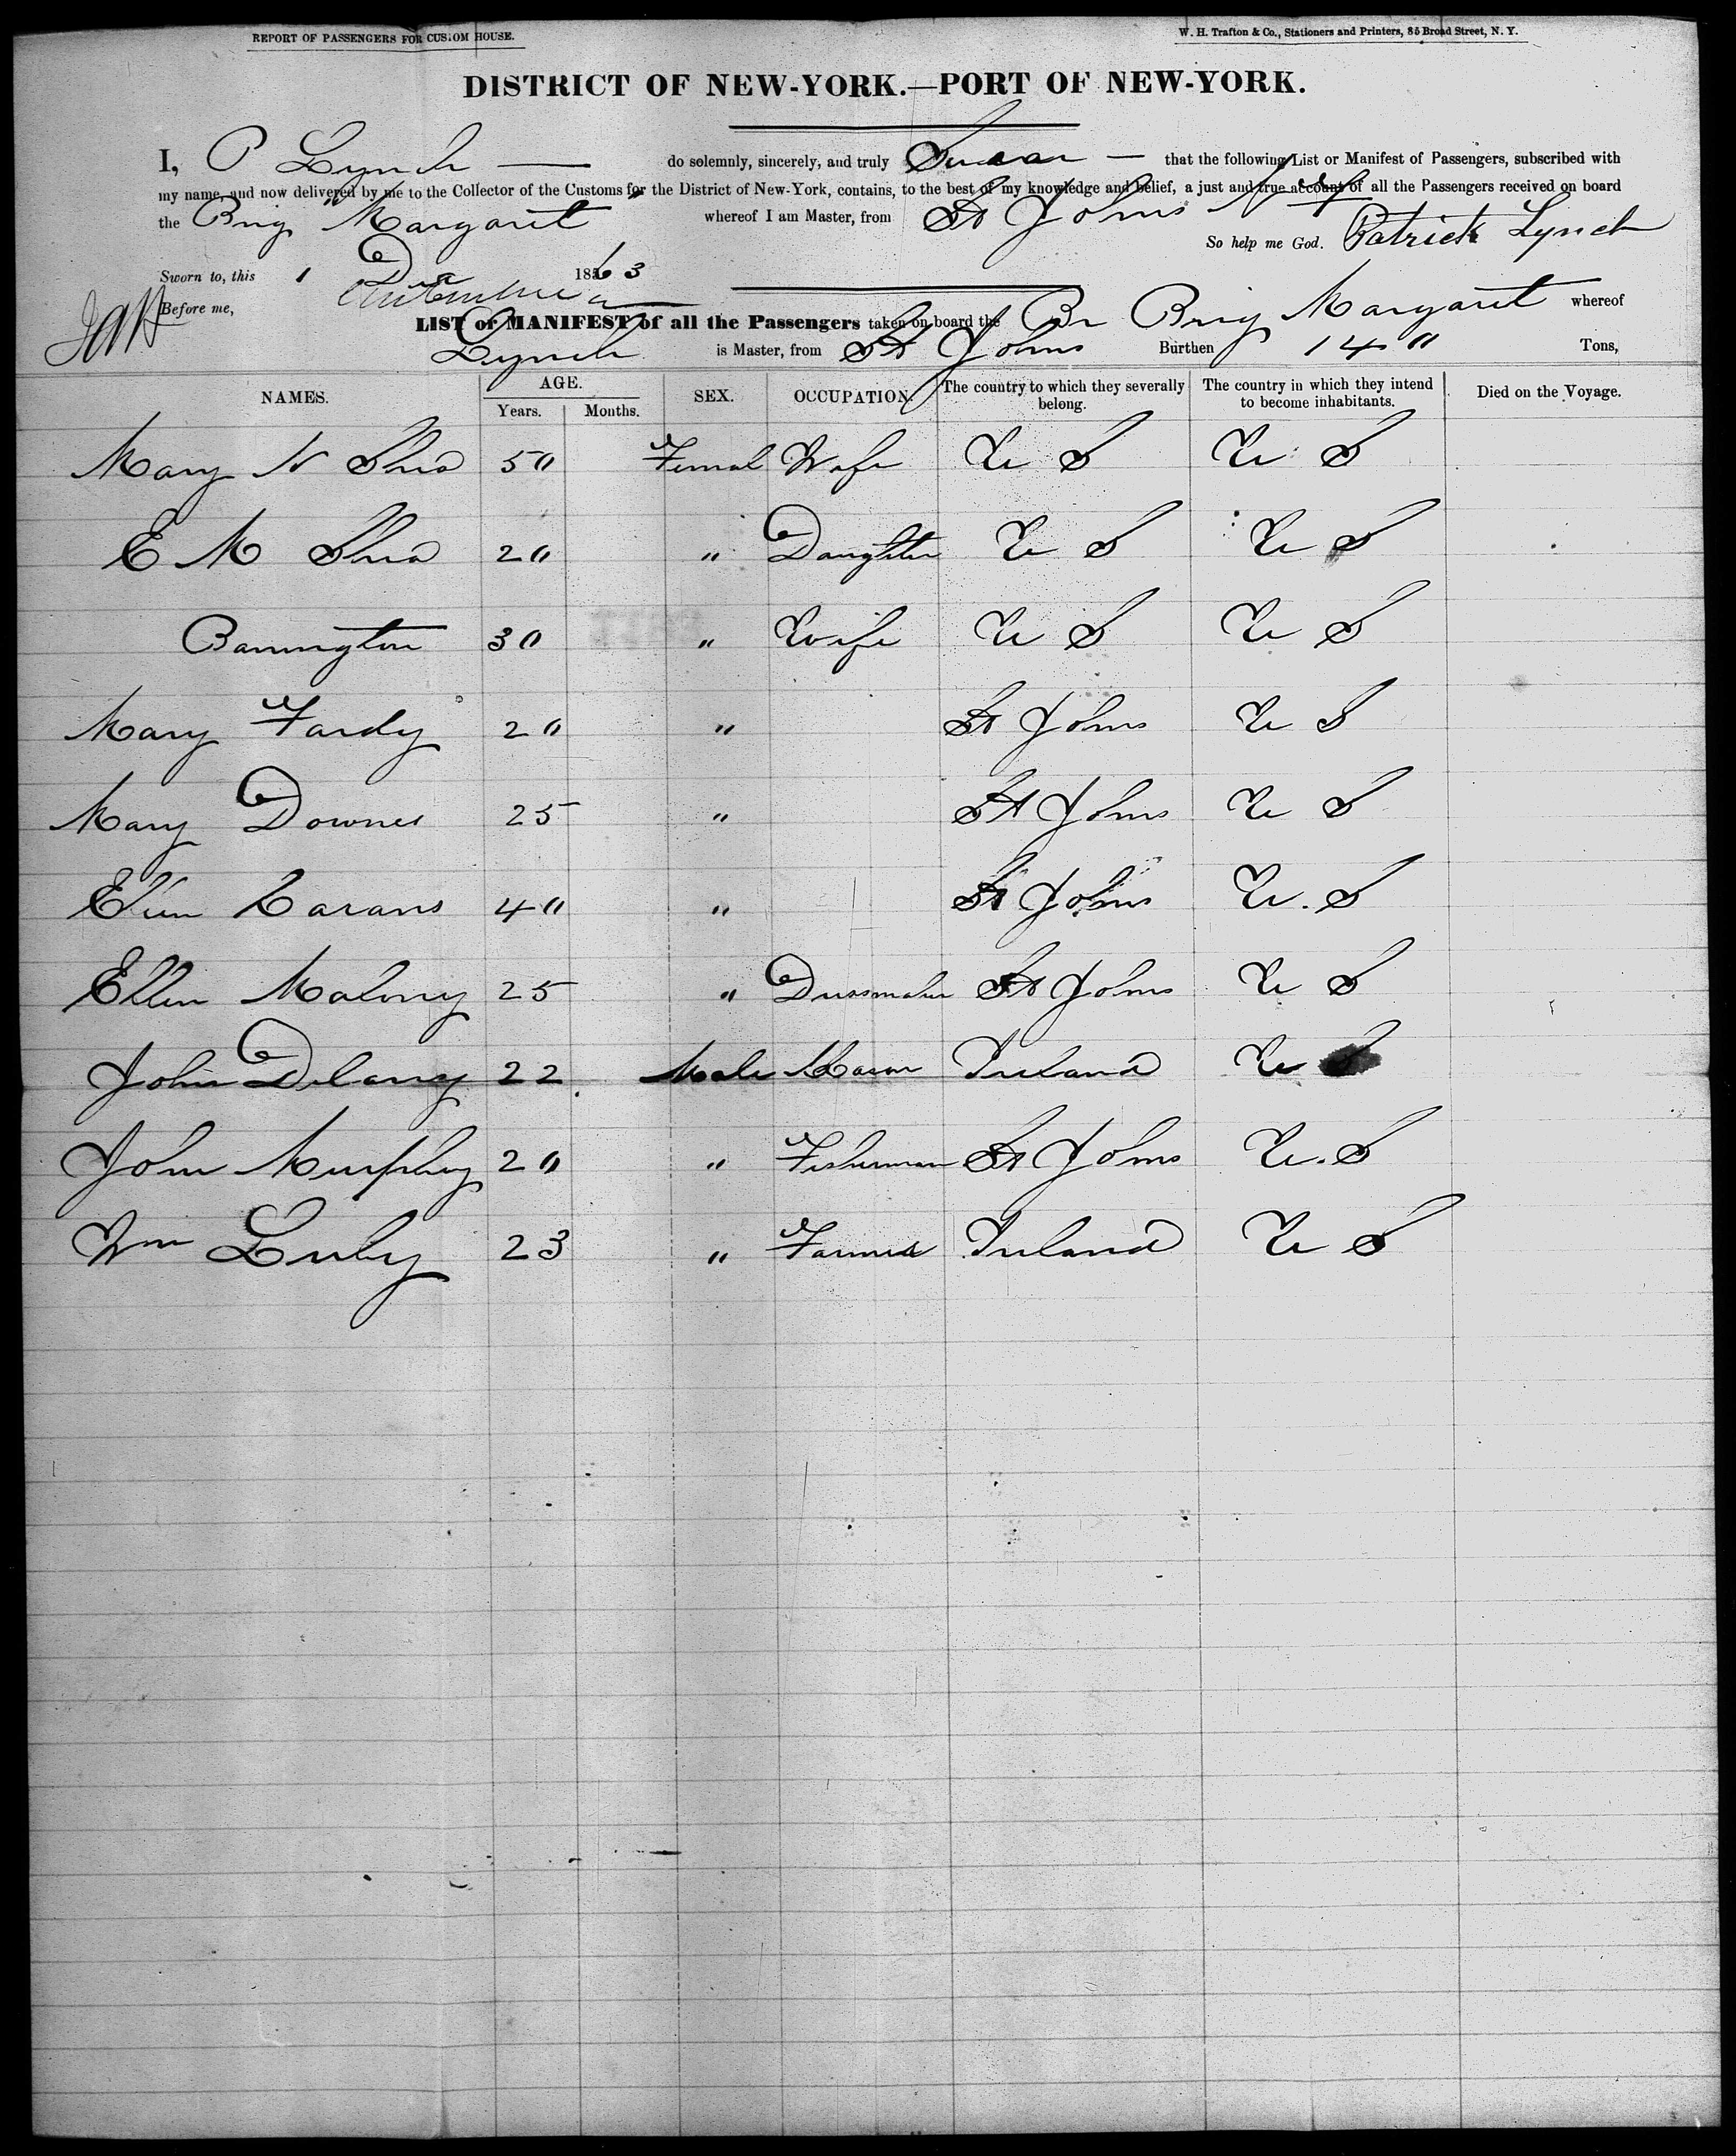 REPORT OF PASSENGERS FOR CUSTOM HOUSE.
W. H. Trafton & Co., Stationers and Printers, 85 Broad Street, N. Y.
DISTRICT OF NEW-YORK.—PORT OF NEW-YORK.
I, P Lynch — do solemnly, sincerely, and truly Swear — that the following List or Manifest of Passengers, subscribed with
my name, and now delivered by me to the Collector of the Customs for the District of New-York, contains, to the best of my knowledge and belief, a just and true account of all the Passengers received on board
the Brig "Margaret" whereof I am Master, from St Johns N F
So help me God. Patrick Lynch
Sworn to, this 1 Dec 1863
Before me,
LIST or MANIFEST of all the Passengers taken on board the Br Brig Margaret whereof
Lynch is Master, from St Johns Burthen 140 Tons,
NAMES. AGE. SEX. OCCUPATION. The country to which they severally belong. The country in which they intend to become inhabitants. Died on the Voyage.
Years. Months.
Mary N Shea 50 Femal Wife U S U S
E M Shea 20 " Daughter U S U S
Bannington 30 " Wife U S U S
Mary Fardy 20 " St Johns U S
Mary Downes 25 " St Johns U S
Ellen 40 " St Johns U. S
Ellen Malony 25 " Dressmaker St Johns U S
John Delany 22 Male Mason Ireland U S
John Murphy 20 " Fisherman St Johns U. S
Wm Luby 23 " Farmer Ireland U S